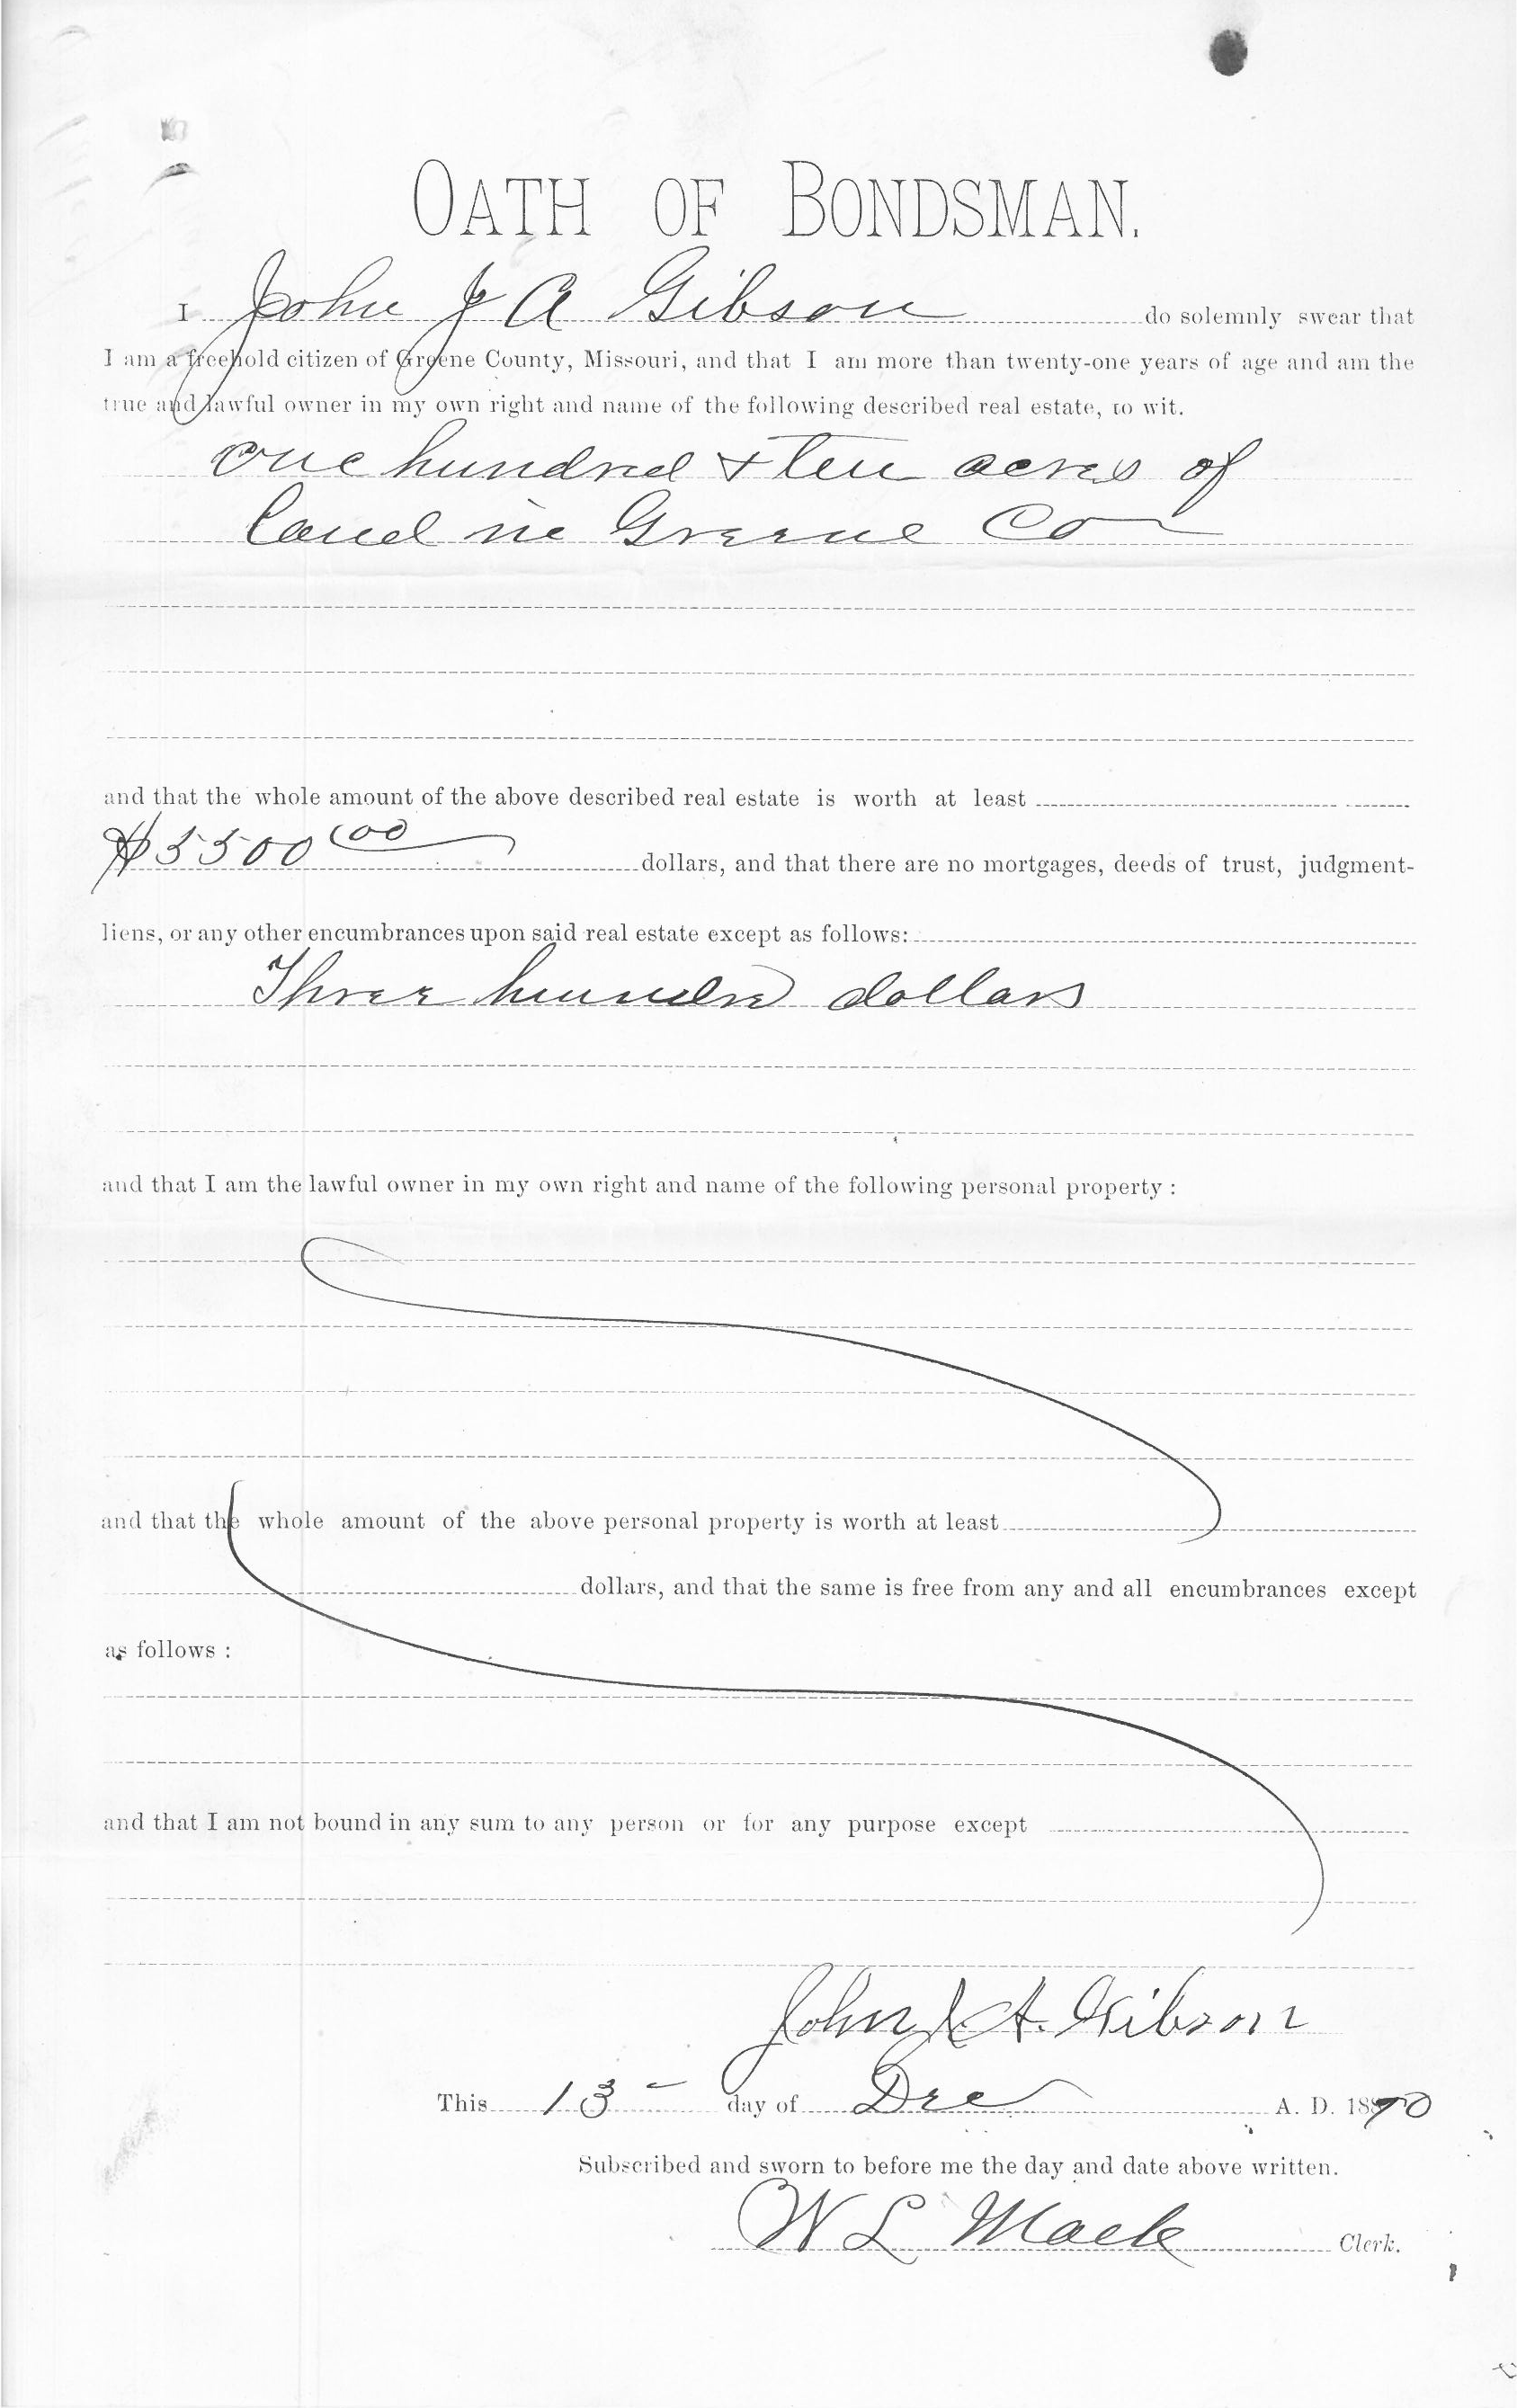 OATH OF BONDSMAN.
I John J A Gibson do solemnly swear that
I am a freehold citizen of Greene County, Missouri, and that I am more than twenty-one years of age and am the
true and lawful owner in my own right and name of the following described real estate, to wit.
one hundred & ten acres of
land in Greene Co
and that the whole amount of the above described real estate is worth at least
$5500 00 dollars, and that there are no mortgages, deeds of trust, judgment-
liens, or any other encumbrances upon said real estate except as follows:
Three hundred dollars
and that I am the lawful owner in my own right and name of the following personal property :
and that the whole amount of the above personal property is worth at least
dollars, and that the same is free from any and all encumbrances except
as follows :
and that I am not bound in any sum to any person or for any purpose except
John J. A. Gibson
This 13 day of Dec A. D. 1890
Subscribed and sworn to before me the day and date above written.
W L Mack Clerk.